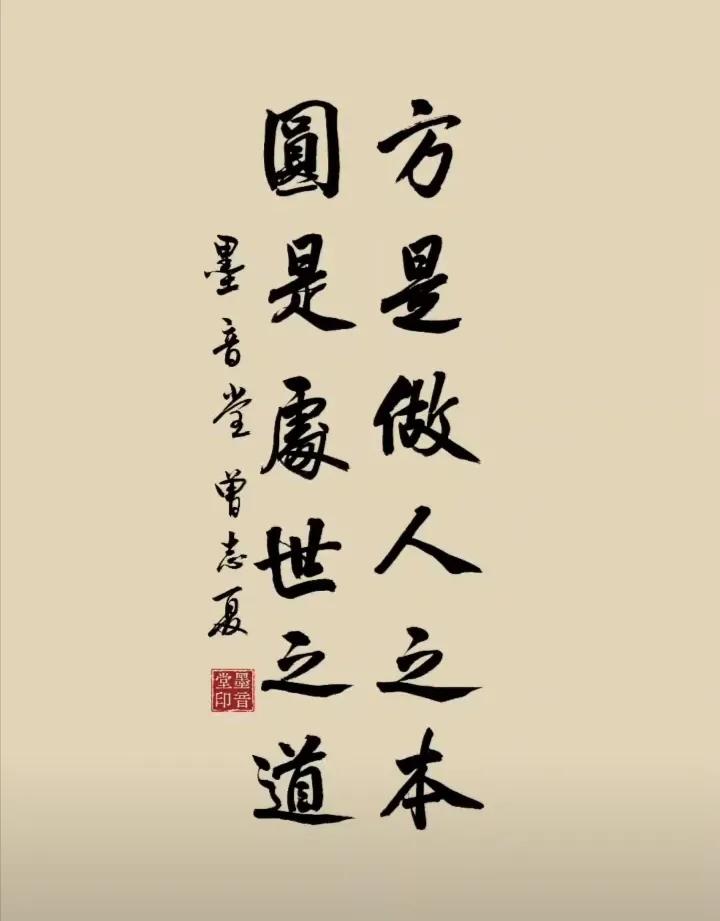 方是做人之本
圓是處世之道
墨音堂曾志夏
墨音堂印